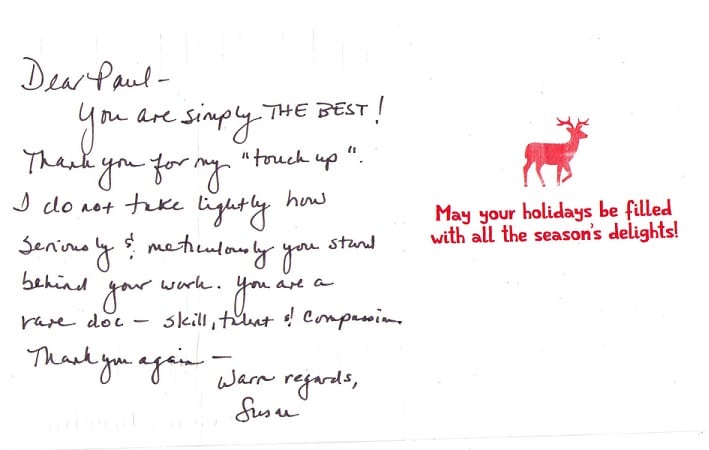 Dear Paul -
You are simply THE BEST!
Thank you for my "touch up".
I do not take lightly how
seriously & meticulously you stand
behind your work. You are a
rare doc - skill, talent & compassion.
Thank you again -
Warm regards,
Susan
May your holidays be filled
with all the season's delights!